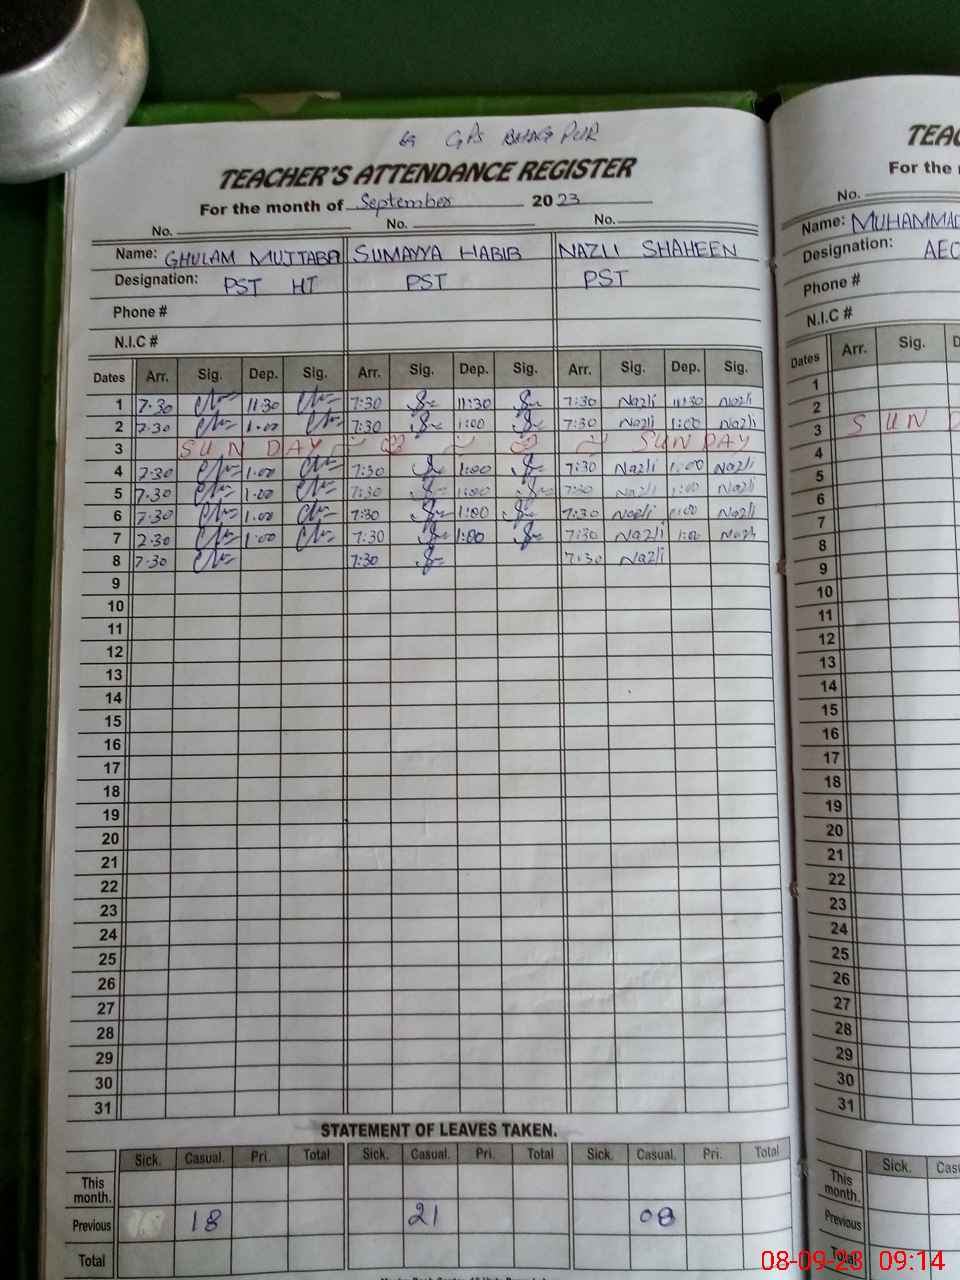 GPS BHAGPUR
TEACHER'S ATTENDANCE REGISTER
For the month of September 2023
No. No. No.
Name: GHULAM MUJTABA SUMAYYA HABIB NAZLI SHAHEEN
Designation: PST HT PST PST
Phone #
N.I.C #
Dates Arr. Sig. Dep. Sig. Arr. Sig. Dep. Sig. Arr. Sig. Dep. Sig.
1 7.30 11:30 7:30 11:30 7:30 Nazli 11:30 Nazli
2 7.30 1.00 7:30 1:00 7:30 Nazli 1:00 Nazli
3 SUNDAY SUNDAY
4 7.30 1.00 7:30 1:00 7:30 Nazli 1:00 Nazli
5 7.30 1.00 7:30 1:00 7:30 Nazli 1:00 Nazli
6 7.30 1.00 7:30 1:00 7:30 Nazli 1:00 Nazli
7 7.30 1.00 7:30 1:00 7:30 Nazli 1:00 Nazli
8 7.30 7:30 7:30 Nazli
9
10
11
12
13
14
15
16
17
18
19
20
21
22
23
24
25
26
27
28
29
30
31
STATEMENT OF LEAVES TAKEN.
Sick. Casual. Pri. Total Sick. Casual. Pri. Total Sick. Casual. Pri. Total
This month.
Previous 18 21 08
Total
For the
No.
Name: MUHAMMAD
Designation: AEO
Phone #
N.I.C #
Dates Arr. Sig.
1
2
3 SUN
4
5
6
7
8
9
10
11
12
13
14
15
16
17
18
19
20
21
22
23
24
25
26
27
28
29
30
31
Sick.
This month.
Previous
Total
08-09-23 09:14